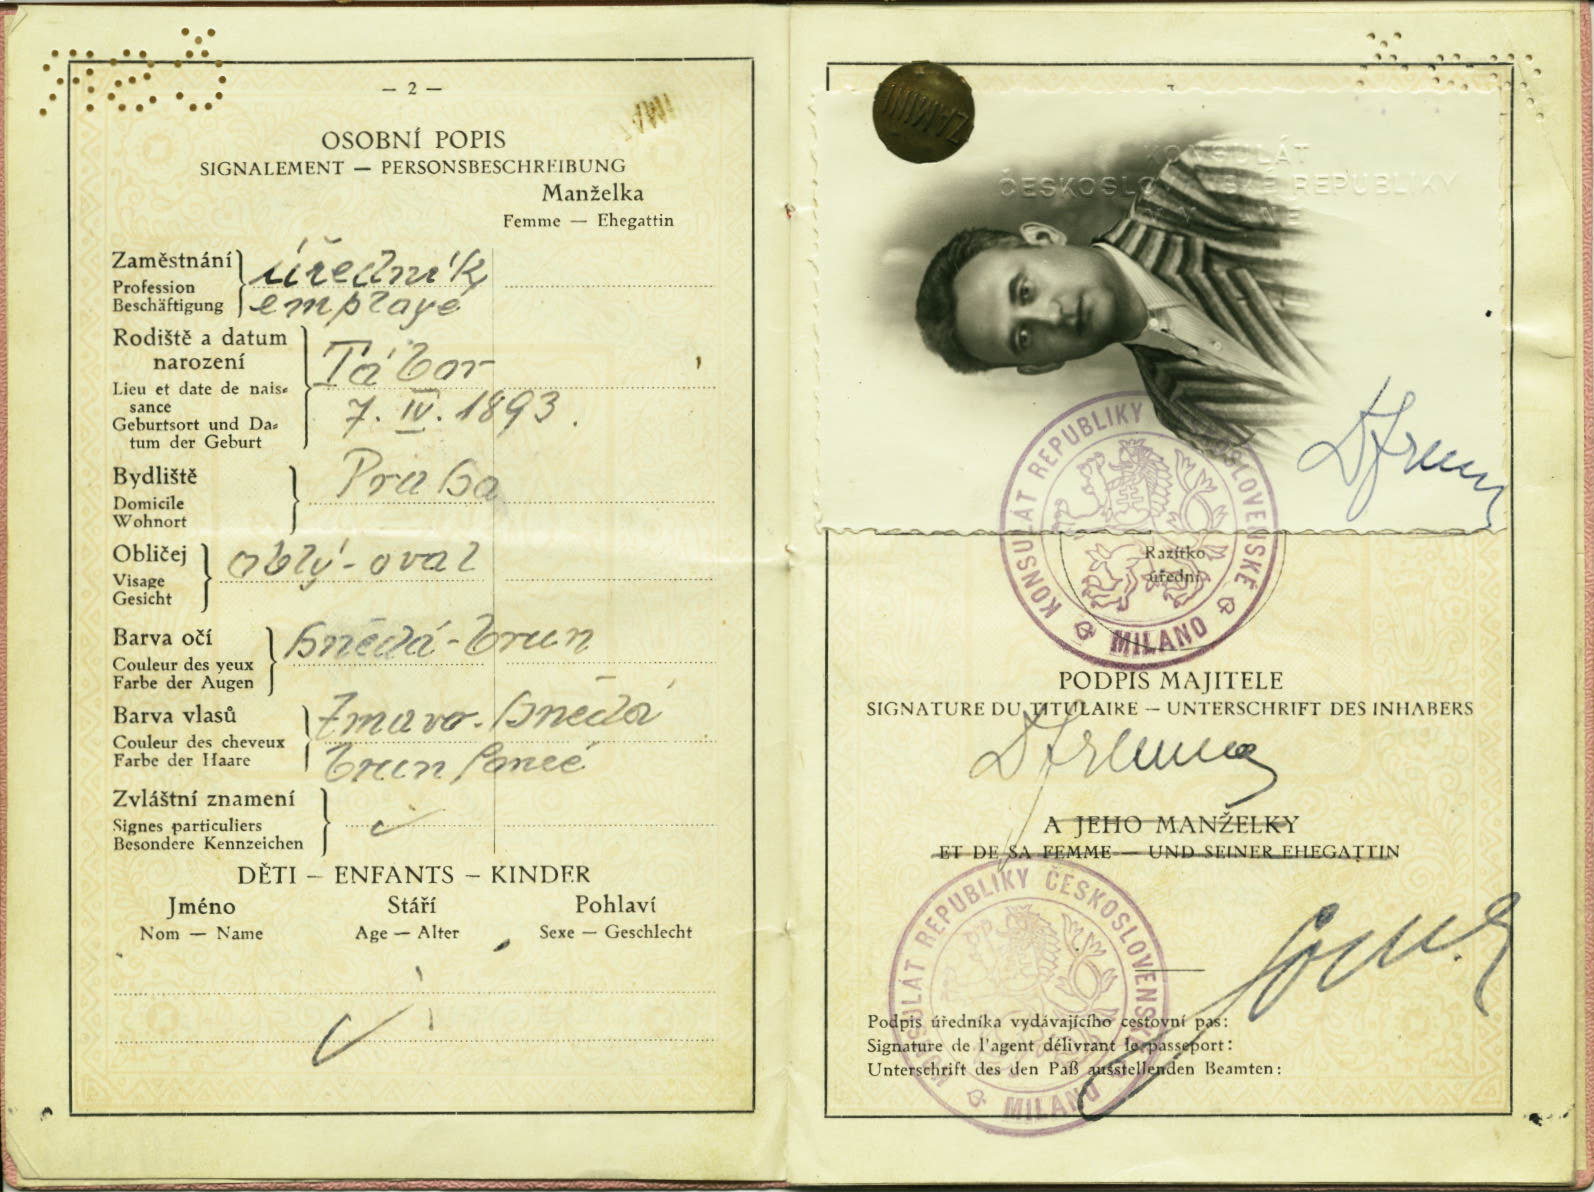 — 2 —
OSOBNÍ POPIS
SIGNALEMENT — PERSONSBESCHREIBUNG
Manželka
Femme — Ehegattin
Zaměstnání
Profession
Beschäftigung
úředník
employé
Rodiště a datum
narození
Lieu et date de nais=
sance
Geburtsort und Da=
tum der Geburt
Tábor
7. IV. 1893.
Bydliště
Domicile
Wohnort
Praha
Obličej
Visage
Gesicht
oblý - oval
Barva očí
Couleur des yeux
Farbe der Augen
hnědá - brun
Barva vlasů
Couleur des cheveux
Farbe der Haare
tmavo-hnědá
brun foncé
Zvláštní znamení
Signes particuliers
Besondere Kennzeichen
DĚTI — ENFANTS — KINDER
Jméno Stáří Pohlaví
Nom — Name Age — Alter Sexe — Geschlecht
KONSULÁT
ČESKOSLOVENSKÉ REPUBLIKY
KONSULÁT REPUBLIKY ČESKOSLOVENSKÉ
MILANO
Razítko
úřední
PODPIS MAJITELE
SIGNATURE DU TITULAIRE — UNTERSCHRIFT DES INHABERS
A JEHO MANŽELKY
ET DE SA FEMME — UND SEINER EHEGATTIN
KONSULÁT REPUBLIKY ČESKOSLOVENSKÉ
MILANO
Podpis úředníka vydávajícího cestovní pas:
Signature de l'agent délivrant le passeport:
Unterschrift des den Paß ausstellenden Beamten: